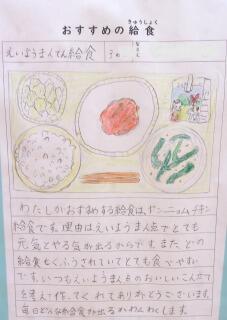 きゅうしょく
おすすめの給食
えいようまんてん給食
なまえ
わたしがおすすめする給食は、ヤンニョムチキン
給食です。理由はえいようまん点でとても
元気とやる気が出るからです。また、どの
給食もくふうされていてとても食べやすい
です。いつもえいようまん点のおいしいこんだて
を考えて作ってくれてありがとうございます。
毎日どんな給食が出るかわくわくします。